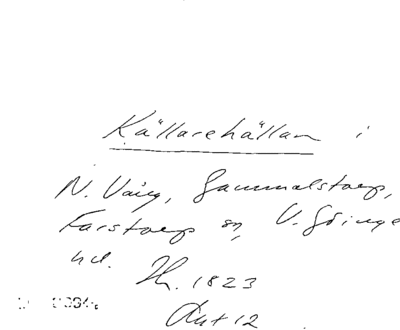 Källarehällan i
N. Vång, Gammalstorp,
Färstorp sn, V. Göinge
hd. Th. 1823
Ant 12